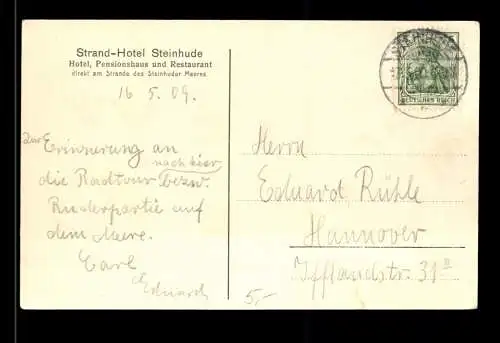 Strand-Hotel Steinhude
Hotel, Pensionshaus und Restaurant
direkt am Strande des Steinhuder Meeres
16 5. 09.
Zur Erinnerung an
nach hier
die Radtour bezw.
Ruderpartie auf
dem Meere.
Carl
Eduard
5,-
DEUTSCHES REICH
Herrn
Eduard Rühle
Hannover
Ifflandstr. 31 II